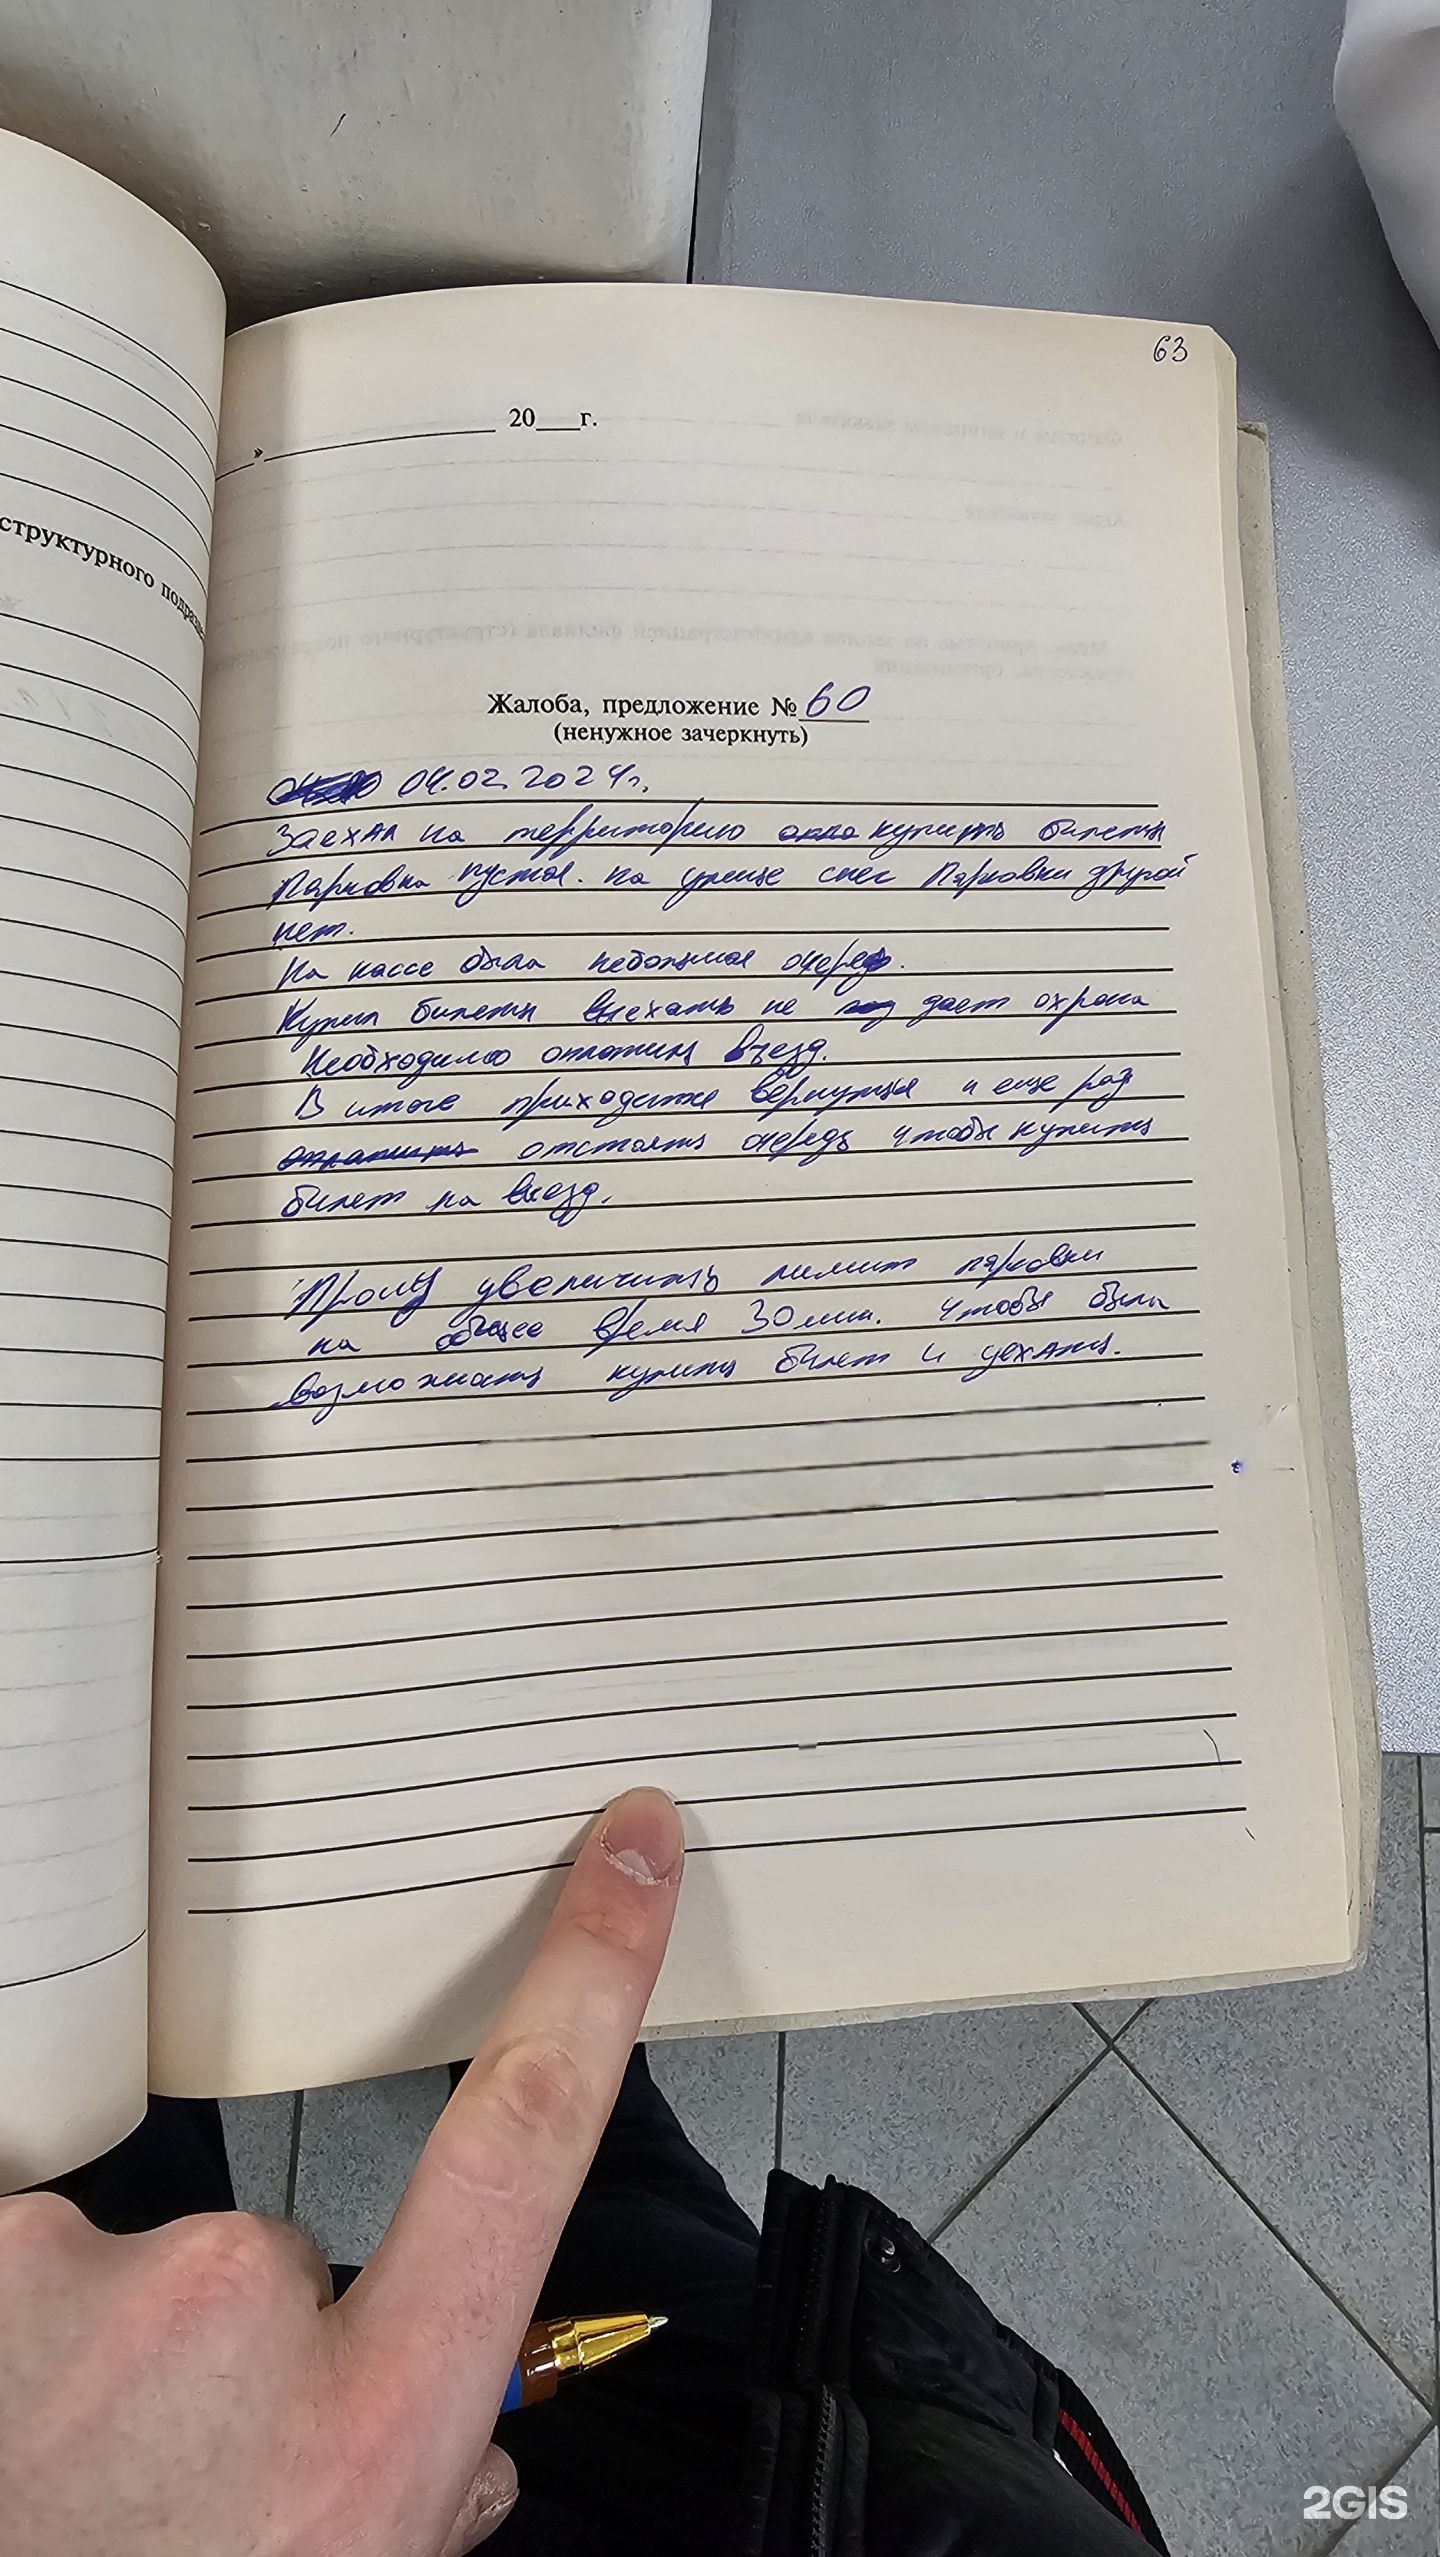 63
» 20 г.
структурного подразде
Жалоба, предложение № 60
(ненужное зачеркнуть)
04.02.2024г.
Заехал на территорию купить билеты
Парковка пустая. на улице снег Парковки другой
нет.
На кассе была небольшая очередь.
Купил билеты выехать не дает охрана
Необходимо оплатить въезд.
В итоге приходится вернуться и еще раз
отстоять очередь чтобы купить
билет на выезд.
Прошу увеличить лимит парковки
на общее время 30 мин. чтобы была
возможность купить билет и уехать.
2GIS